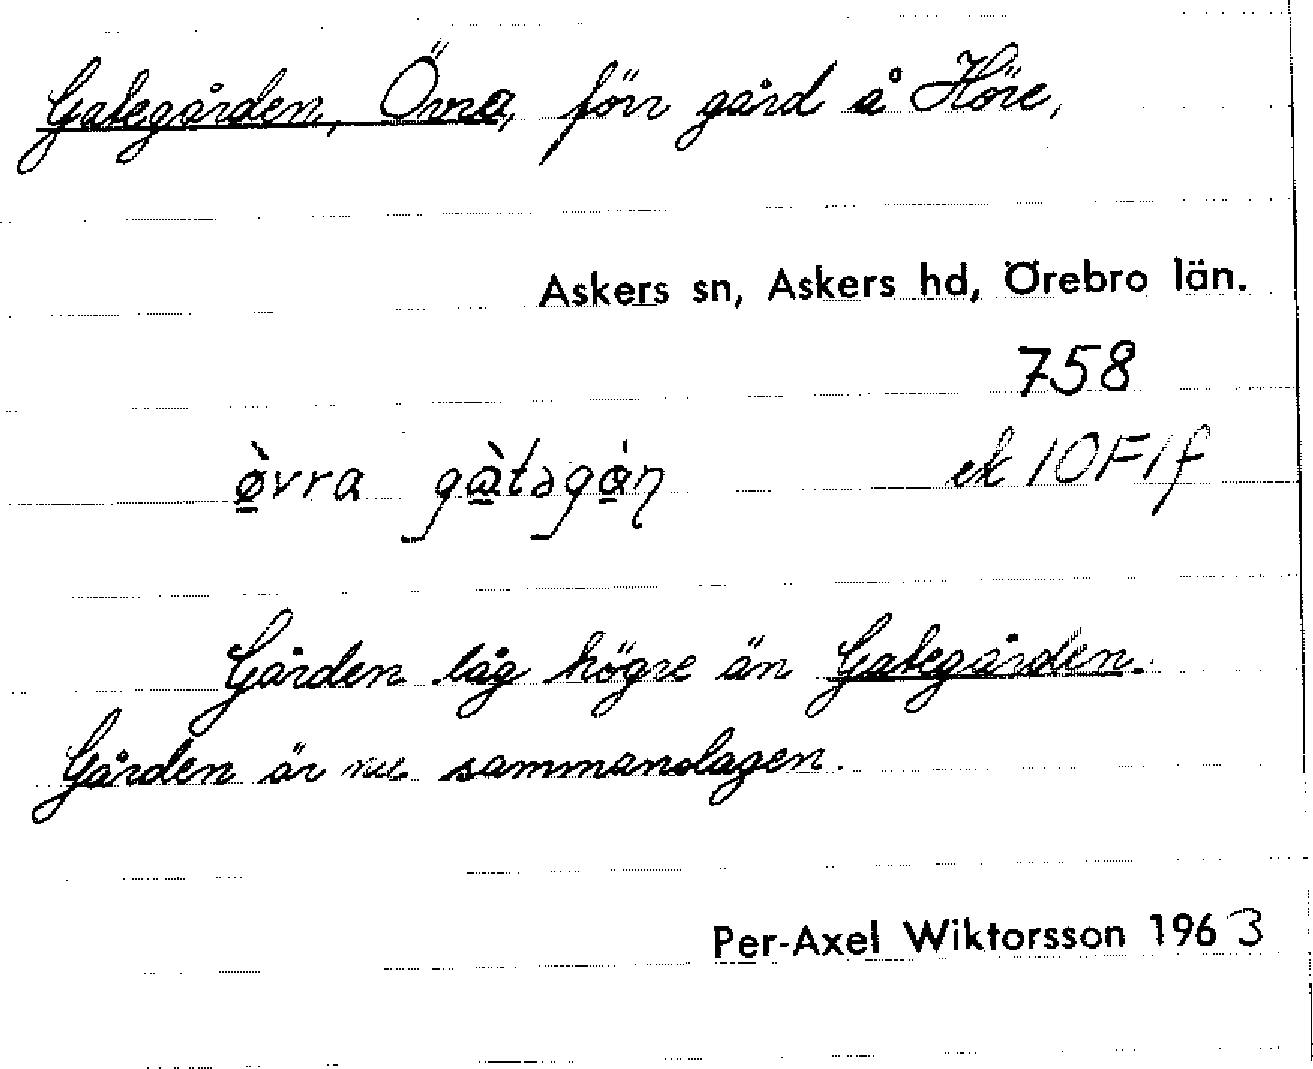 Gategården, Övra, förr gård å Höre,
Askers sn, Askers hd, Örebro län.
758
ø̀vra gàtəgȧ́ɳ ek 10F1f
Gården låg högre än Gategården.
Gården är nu sammanslagen.
Per-Axel Wiktorsson 1963